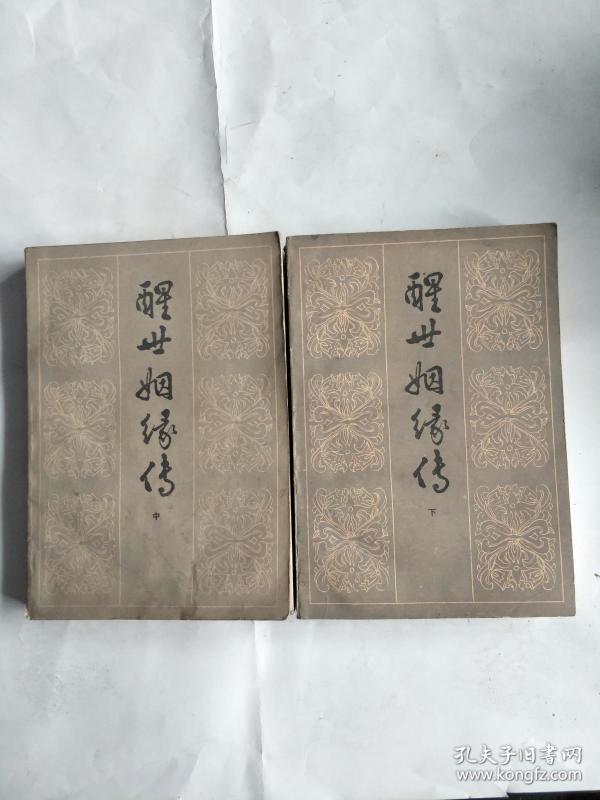 醒世姻缘传
中
醒世姻缘传
下
孔夫子旧书网
www.kongfz.com